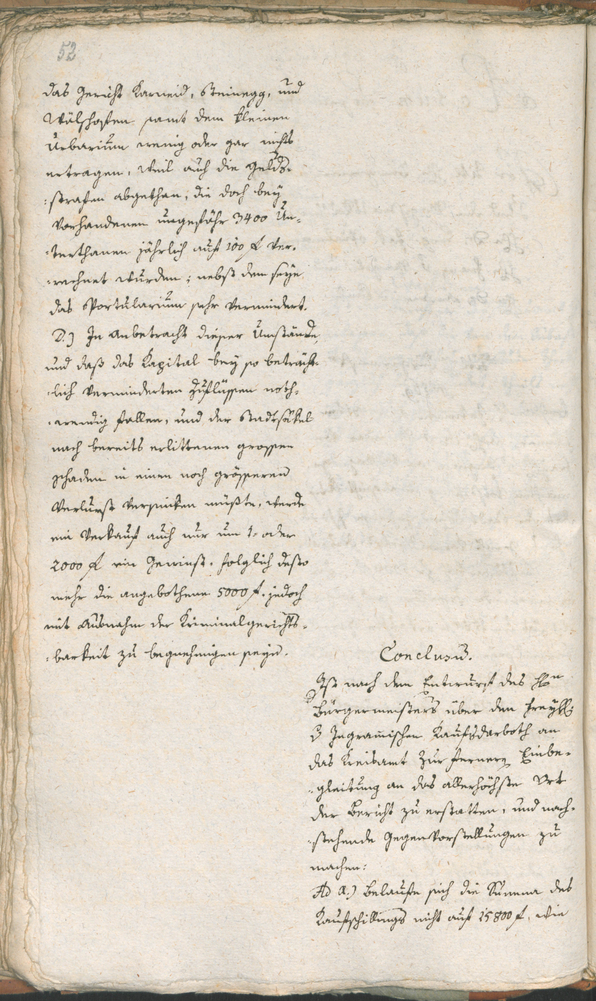 52
das Gericht Karneid, Steinegg, und
Wälschofen samt dem kleinen
Urbarium wenig oder gar nichts
ertragen, weil auch die Geld-
:strafen abgethan, die doch bey
vorhandenen ungefähr 3400 Un-
:terthanen jährlich auf 100 f. ver-
:rechnet wurden; nebst dem seye
das Sportularium sehr vermindert.
D.) In Anbetracht dieser Umstände
und daß das Kapital bey so beträcht-
:lich verminderten Zuflüssen noth-
:wendig fallen, und der Stadtsäkel
nach bereits erlittenen grossen
Schaden in einen noch grösseren
Verlurst versinken müßte, werde
ein Verkauf auch nur um 1. oder
2000 f. ein Gewinst, folglich desto
mehr die angebothenen 5000 f. jedoch
mit Ausnahm der Kriminalgerichts-
:barkeit zu begnehmigen seyn.
Conclusum.
Ist nach dem Entwurf des Hn
Bürgermeisters über den Freyhl.
v Ingramischen Kaufsanboth an
das Kreisamt zur fernern Einbe-
:gleitung an das allerhöchste Ort
der Bericht zu erstatten, und nach-
:stehende Gegenvorstellungen zu
machen:
Ad A.) belaufe sich die Summa des
Kaufschillings nicht auf 15800 f. wie